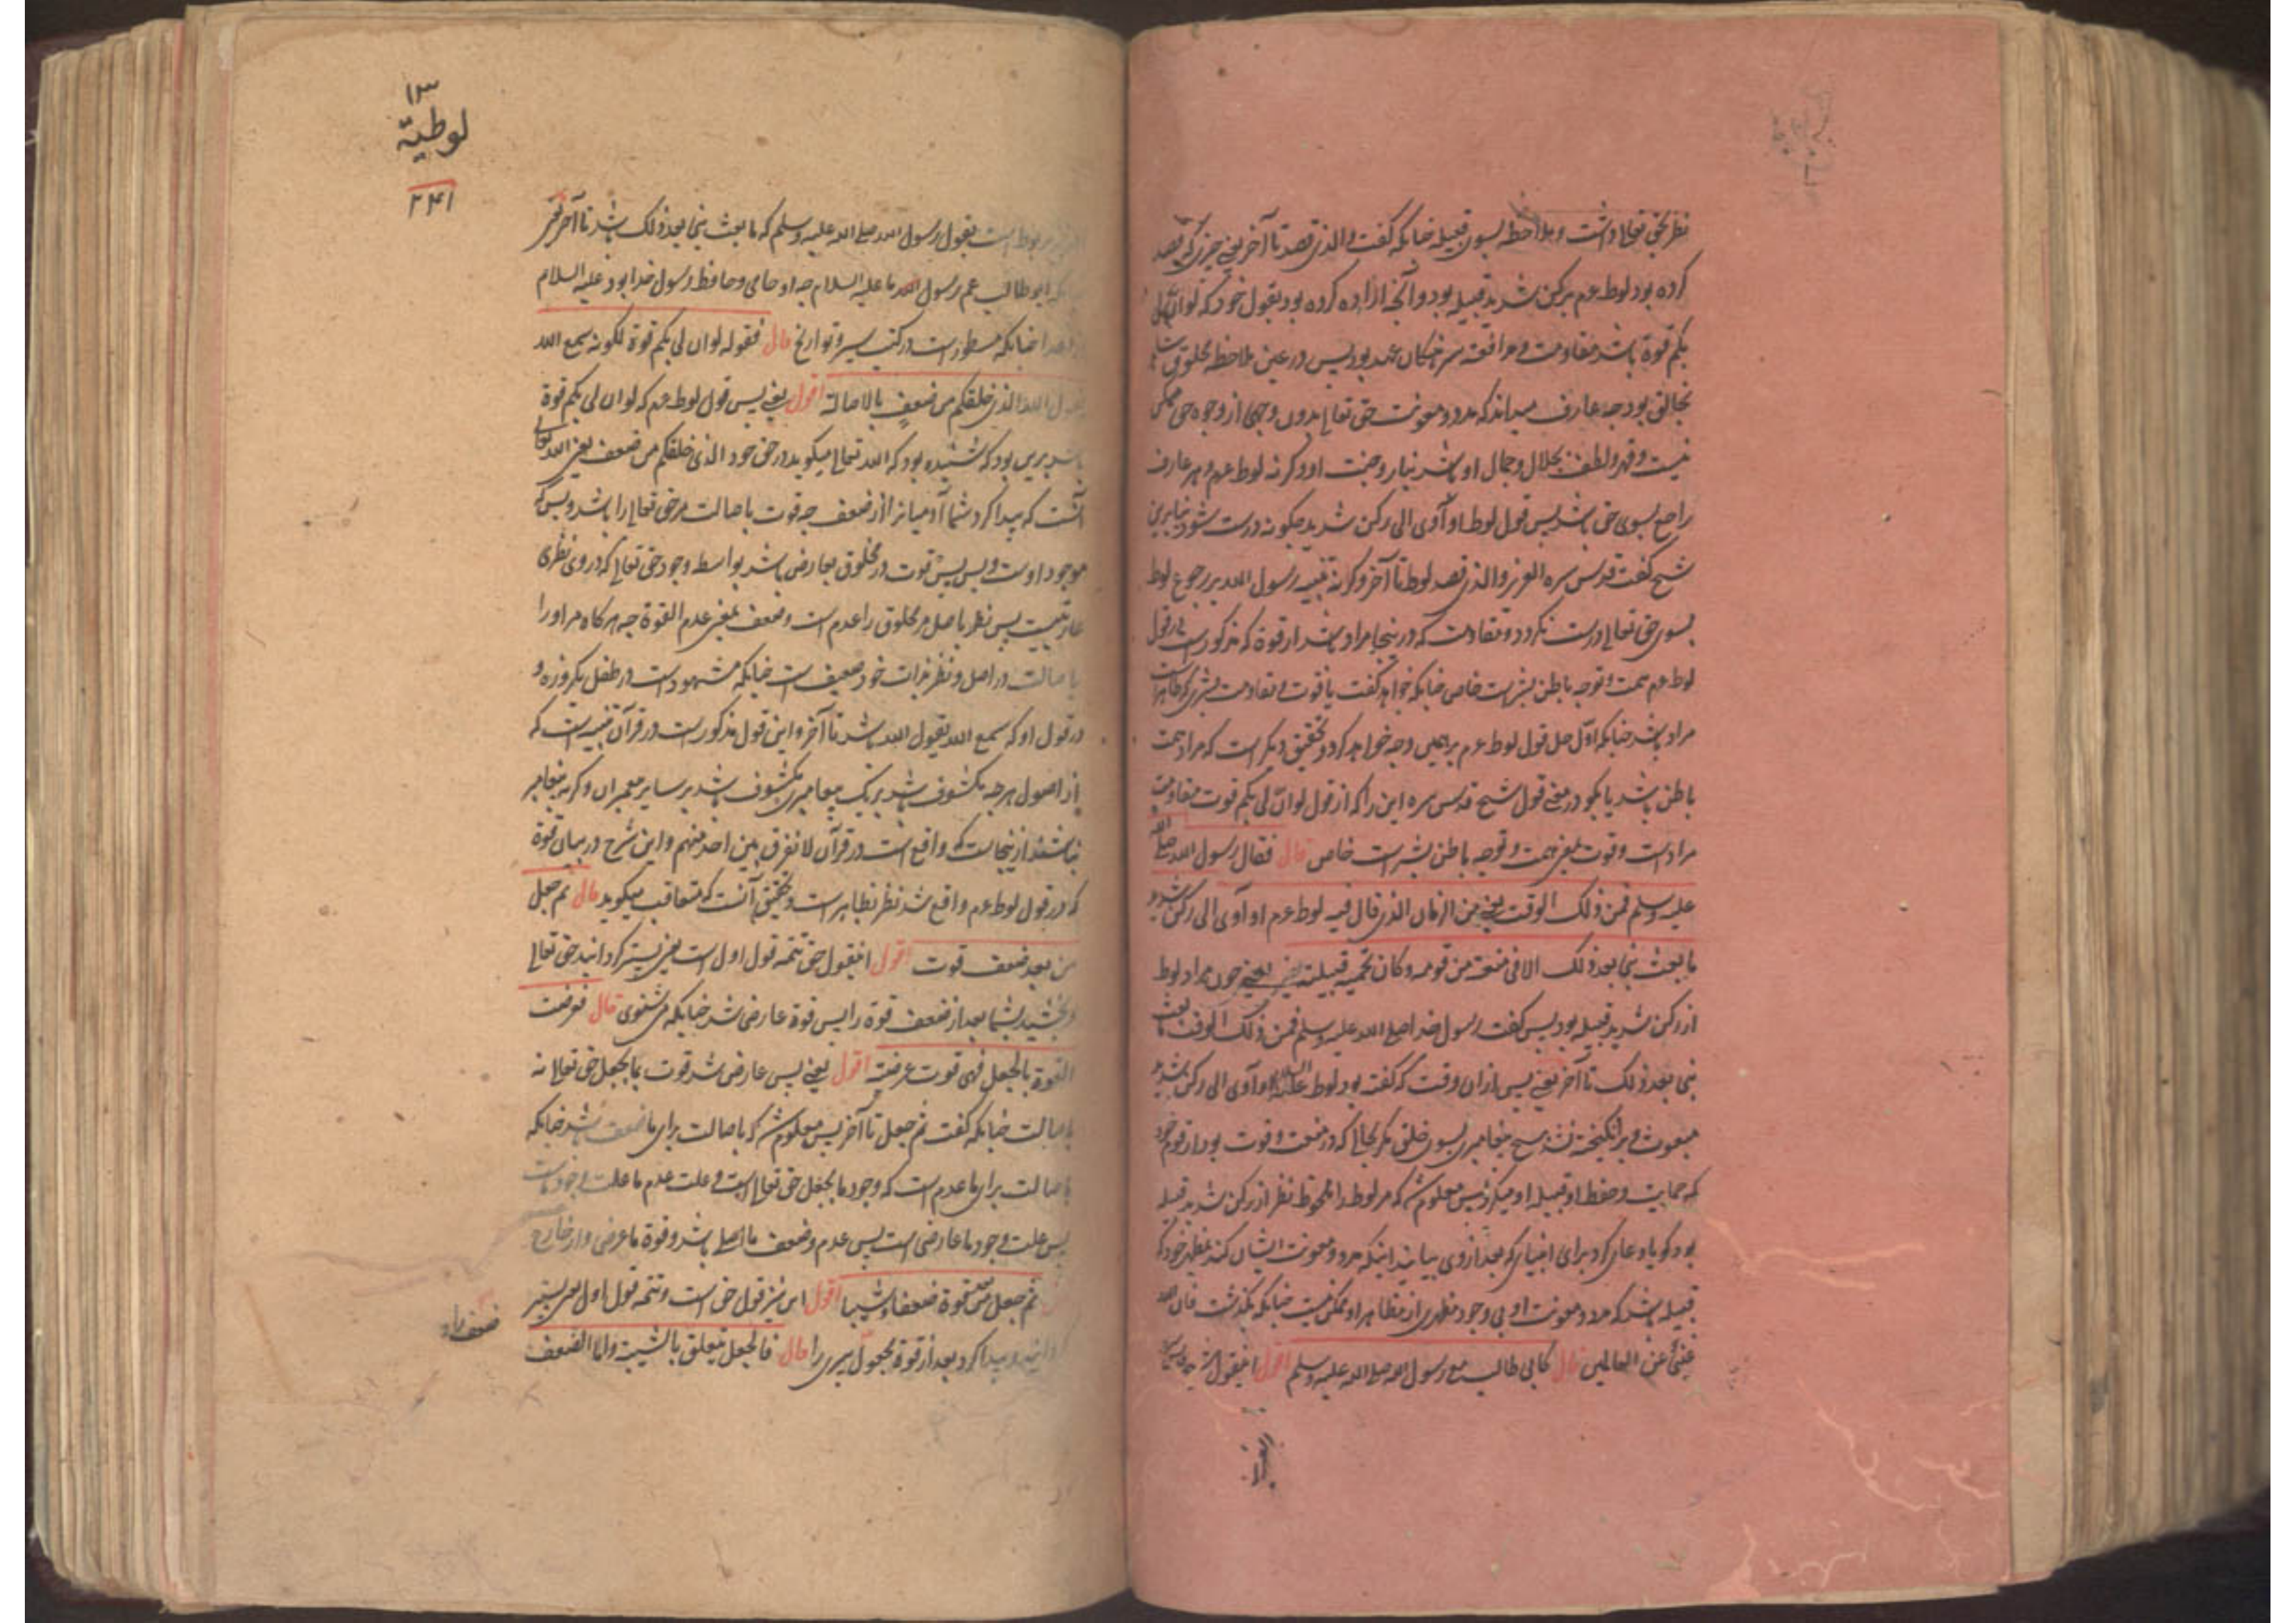 نظر بحق تعالی داشت و ملاحظه بسوی قبیله چنانکه گفت و الذی قصد تا آخر یعنی چیزی که قصد
کرده بود لوط عم برکن شدید قبیله بود و آنچه اراده کرده بود بقول خود که لو ان لی
بکم قوة باشد مقاومت و مرافعه سرهنگان عهد بود پس در عین ملاحظه مخلوق
بخالق بود چه عارف میداند که مدد و معونت حق تعالی بدون وجهی از وجوه حق ممکن
نیست و قهر و لطف بجلال و جمال او باشد و کرنه لوط عم و هر عارف
راجع بسوی حق باشد پس قول لوط او آوی الی رکن شدید چگونه درست شود بنابرین
شیخ گفت قدس سره العزیز و الذی قصد لوط تا آخر و کرنه تنبیه رسول الله بر رجوع لوط
بسوی حق تعالی درست نگردد و مقاومت که درینجا مراد باشد از قوة که مذکور است در قول
لوط عم همت و توجه باطن بشر است خاص چنانکه خواهد گفت یا قوت و مقاومت بشری که ظاهر است
مراد باشد چنانکه اول حل قول لوط عم بر همین وجه خواهد کرد و تحقیق دیگر است که مراد همت
باطن باشد یا بگو در معنی قول شیخ قدس سره این را که از قول لو ان لی بکم قوت مقاومت
مراد است و قوت بمعنی همت و توجه باطن بشر است خاص قال فقال رسول الله صلی الله
علیه و سلم فمن ذلک الوقت یعنی من الزمان الذی قال فیه لوط عم او آوی الی رکن شدید
ما بعث نبی بعد ذلک الا فی منعة من قومه و کان تحمیه قبیلته یعنی چون مراد لوط
از رکن شدید قبیله بود پس گفت رسول خدا صلی الله علیه وسلم فمن ذلک الوقت ما بعث
نبی بعد ذلک تا آخر یعنی پس از ان وقت که گفته بود لوط علیه السلام او آوی الی رکن شدید
مبعوث و برانگیخته نشد هیچ پیغامبری بسوی خلق مگر بحالی که در منعت و قوت بود از قوم خود
که حمایت و حفظ او قبیله او میکرد پس معلوم شد که مر لوط را ملحوظ نظر از رکن شدید قبیله
بود کویا دعا کرد برای انبیای که بعد از وی بیایند اینکه مدد و معونت ایشان کند بمظهر خود که
قبیله باشد که مدد و معونت او بی وجود مظهری از مظاهر او ممکن نیست چنانکه بگذشت فان الله
غنی عن العالمین قال کابی طالب مع رسول الله صلی الله علیه وسلم اقول اینقول شیخ
۱۳
لوطیة
۲۴۱
مربوط است بقول رسول الله صلی الله علیه و سلم که ما بعث نبی بعد ذلک باشد تا آخر
ابو طالب عم رسول الله ما علیه السلام چه او حامی و حافظ رسول خدا بود علیه السلام
چنانکه مسطور است در کتب سیر و تواریخ قال فقوله لو ان لی بکم قوة لکونه سمع الله
یقول الله الذی خلقکم من ضعف بالاصالة اقول یعنی پس قول لوط عم که لو ان لی بکم قوة
باشد برین بود که شنیده بود که الله تعالی میگوید در حق خود الذی خلقکم من ضعف یعنی الله تعالی
آنست که پیدا کرد شما آدمیان را از ضعف چه قوت باصالت مر حق تعالی را باشد و بس که
موجود اوست و بس پس قوت در مخلوق بعارض باشد بواسطه وجود حق تعالی که در وی نظری
عاریتیست پس نظر باصل مر مخلوق را عدم است و ضعف بمعنی عدم القوة چه هرکاه مر او را
باصالت در اصل و نظر بذات خود ضعیف است چنانکه مشهود است در طفل یکروزه و
در قول او که سمع الله یقول الله باشد تا آخر و این قول مذکور است در قرآن تنبیه است که
از اصول هرچه مکشوف باشد بر یک پیغامبر مکشوف باشد بر سایر پیغمبران و کرنه پیغامبر
نباشند از ینجاست که واقع است در قرآن لا نفرق بین احد منهم و این شرح در بیان قوة
که در قول لوط عم واقع شد نظر بظاهر است و تحقیق آنست که متعاقب میگوید قال ثم جعل
من بعد ضعف قوت اقول اینقول حق تتمه قول اول است یعنی پستر گردانید حق تعالی
و بخشید بشما بعد از ضعف قوة را پس قوة عارض شد چنانکه می شنوی قال فعرضت
القوة بالجعل فهی قوت عرضیة اقول یعنی پس عارض شد قوت بما بجعل حق تعالی نه
باصالت چنانکه گفت ثم جعل تا آخر پس معلوم شد که باصالت برای ما ضعف باشد چنانکه
باصالت برای ما عدم است که وجود ما بجعل حق تعالی است و علت عدم ما علت وجود ماست
پس علت وجود ما عارضی است پس عدم و ضعف ما اصلی باشد و قوة ما عرضی و از خارج
ثم جعل من بعد قوة ضعفا و شیبا اقول این نیز قول حق است و تتمه قول اول یعنی پستر
گردانید و پیدا کرد بعد از قوة مجعول پیری را قال فالجعل یتعلق بالشیب و اما الضعف
ضعف را و